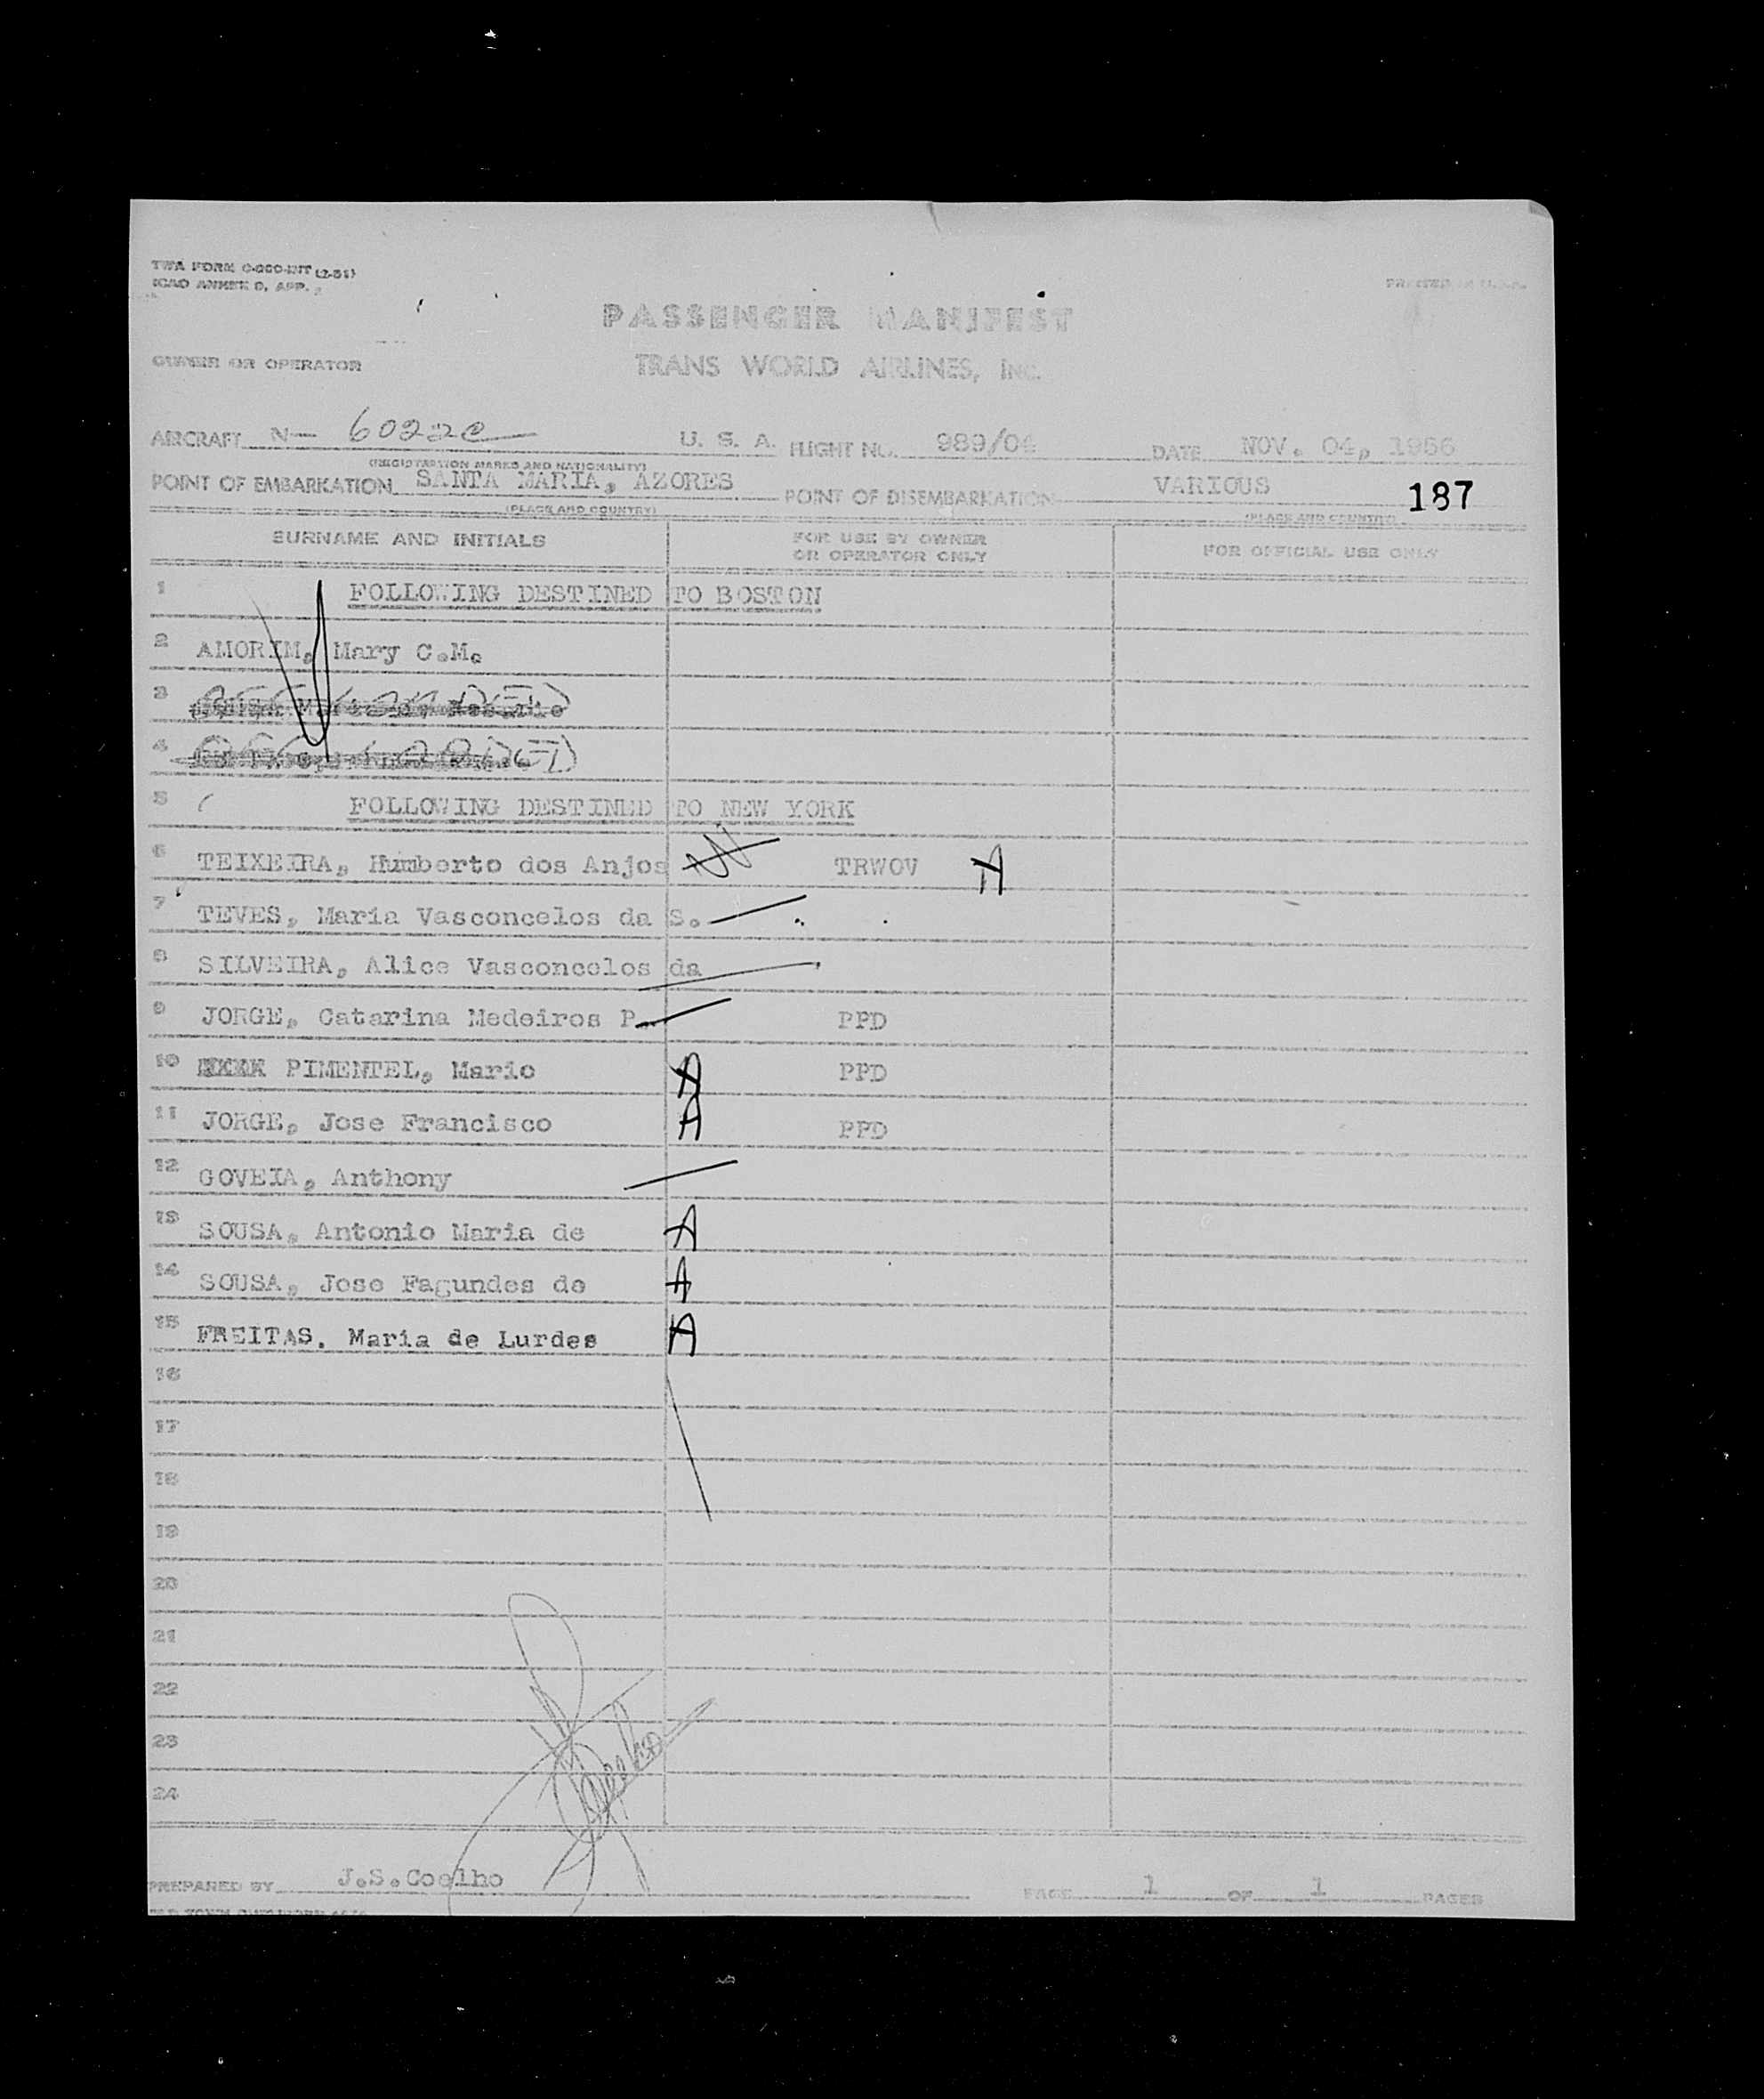 TWA FORM
ICAO ANNEX 9, APP.
PRINTED IN U.S.A.
PASSENGER MANIFEST
OWNER OR OPERATOR TRANS WORLD AIRLINES, INC.
AIRCRAFT N- 6022C U. S. A. FLIGHT NO. 989/04 DATE NOV. 04, 1956
(REGISTRATION MARKS AND NATIONALITY)
POINT OF EMBARKATION SANTA MARIA, AZORES POINT OF DISEMBARKATION VARIOUS 187
(PLACE AND COUNTRY) (PLACE AND COUNTRY)
SURNAME AND INITIALS FOR USE BY OWNER OR OPERATOR ONLY FOR OFFICIAL USE ONLY
1 FOLLOWING DESTINED TO BOSTON
2 AMORIM, Mary C.M.
3
4
5 FOLLOWING DESTINED TO NEW YORK
6 TEIXEIRA, Humberto dos Anjos TRWOV A
7 TEVES, Maria Vasconcelos da S.
8 SILVEIRA, Alice Vasconcelos da
9 JORGE, Catarina Medeiros P. PPD
10 PIMENTEL, Mario A PPD
11 JORGE, Jose Francisco A PPD
12 GOVEIA, Anthony
13 SOUSA, Antonio Maria de A
14 SOUSA, Jose Fagundes de A
15 FREITAS. Maria de Lurdes A
16
17
18
19
20
21
22
23
24
PREPARED BY J.S.Coelho PAGE 1 OF 1 PAGES